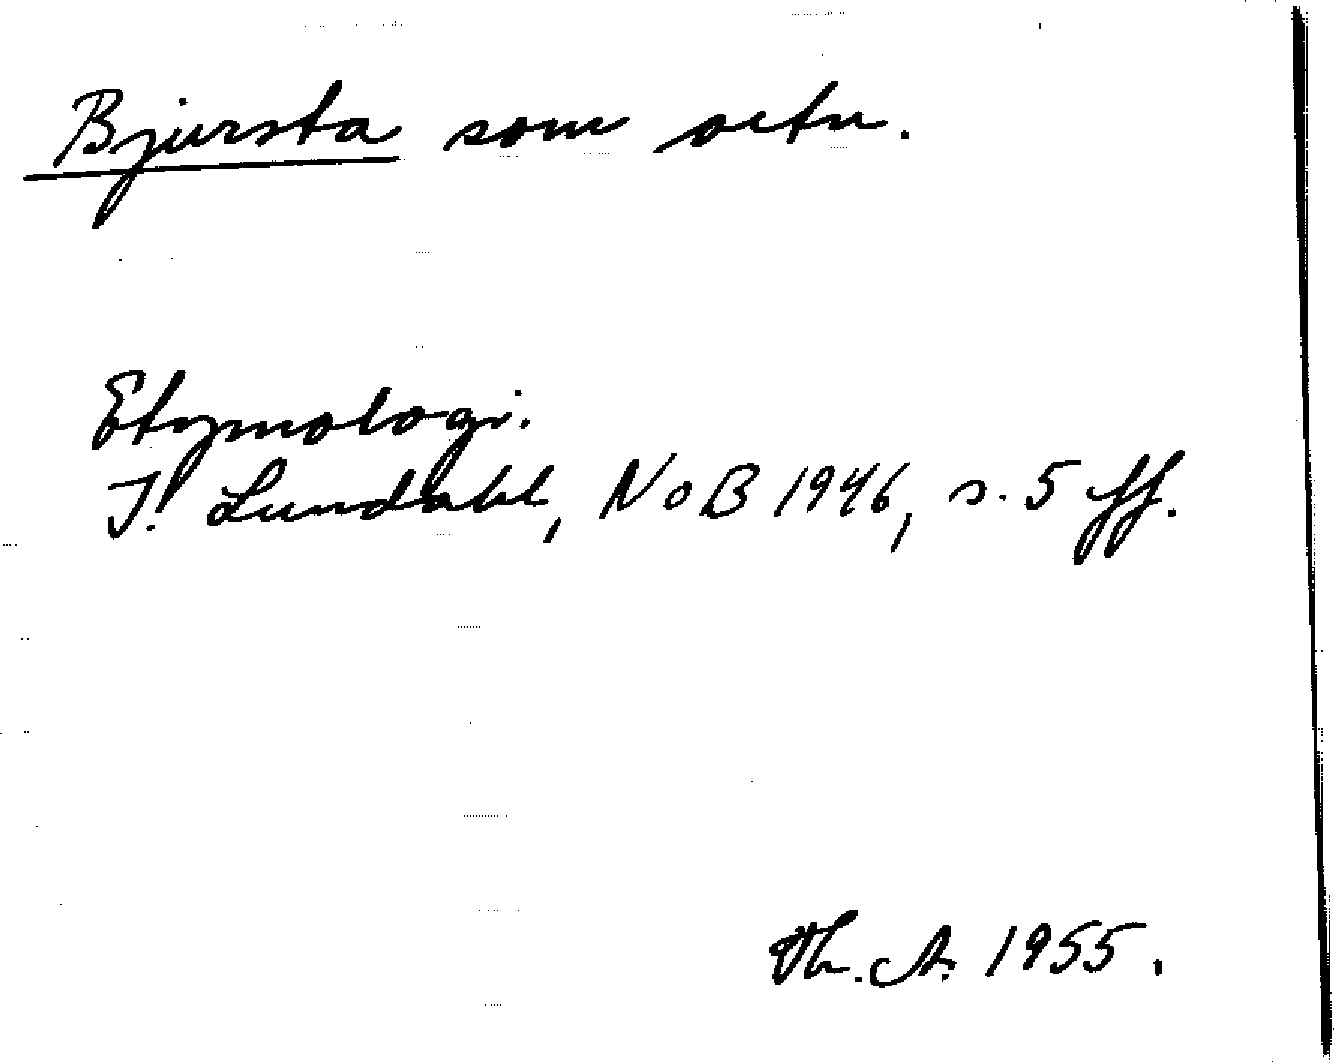 Bjursta som ortn.
Etymologi.
I. Lundahl, NoB 1946, s. 5 ff.
Th. A. 1955.